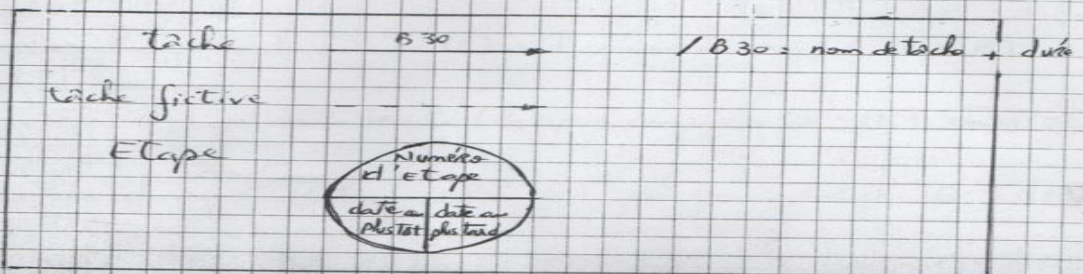 tâche B30 / B30 = nom de tache + durée
tâche fictive
Etape
Numéro
d'Etape
date au plus Tôt
date au plus tard